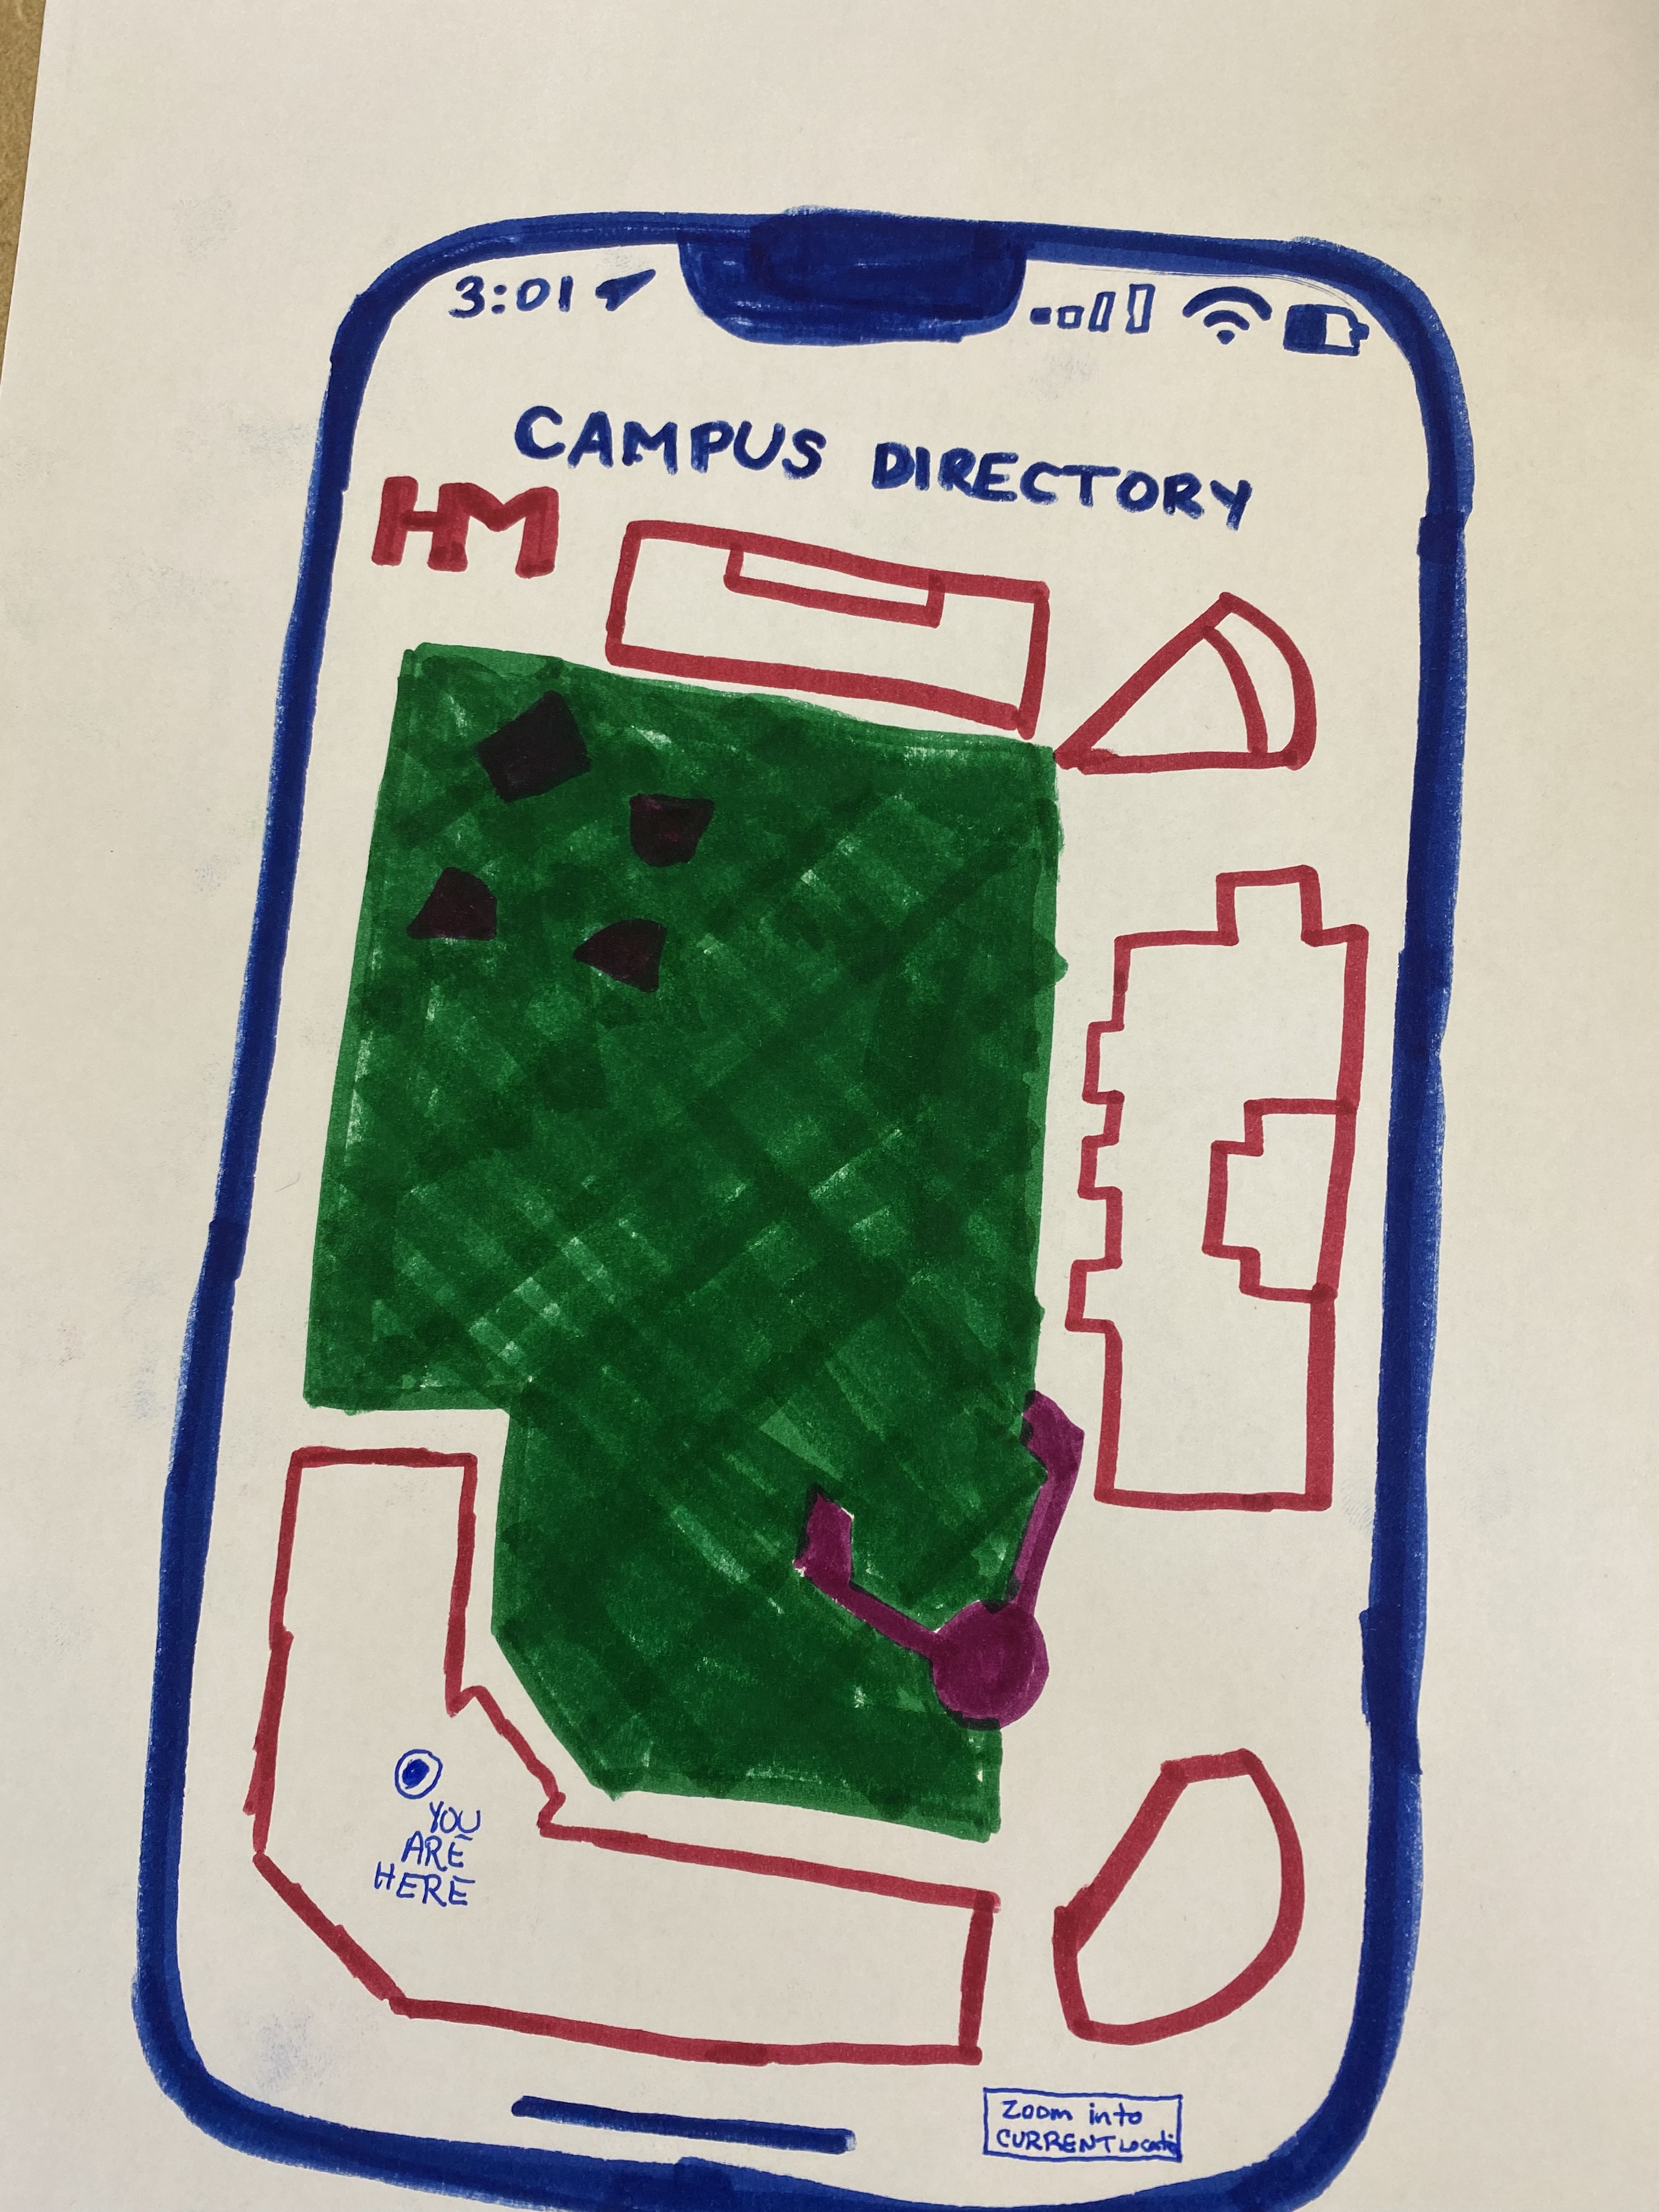 3:01
CAMPUS DIRECTORY
HM
YOU
ARE
HERE
Zoom into
CURRENT